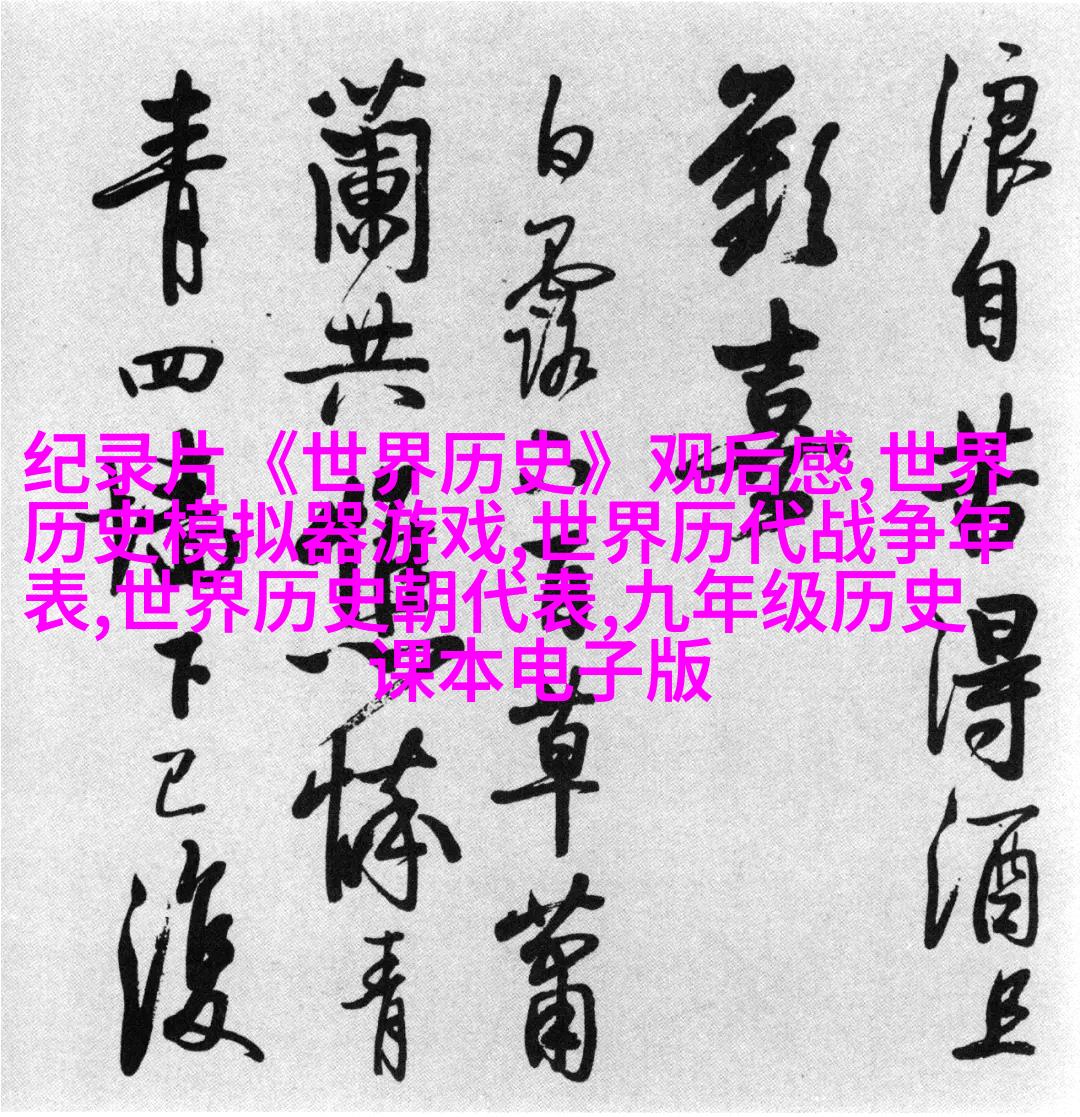 浪自苦得酒且
歡喜
白露下百草蕭
蘭共雕悴青
青四牆下已復
纪录片《世界历史》观后感,世界
历史模拟器游戏,世界历代战争年
表,世界历史朝代表,九年级历史
课本电子版